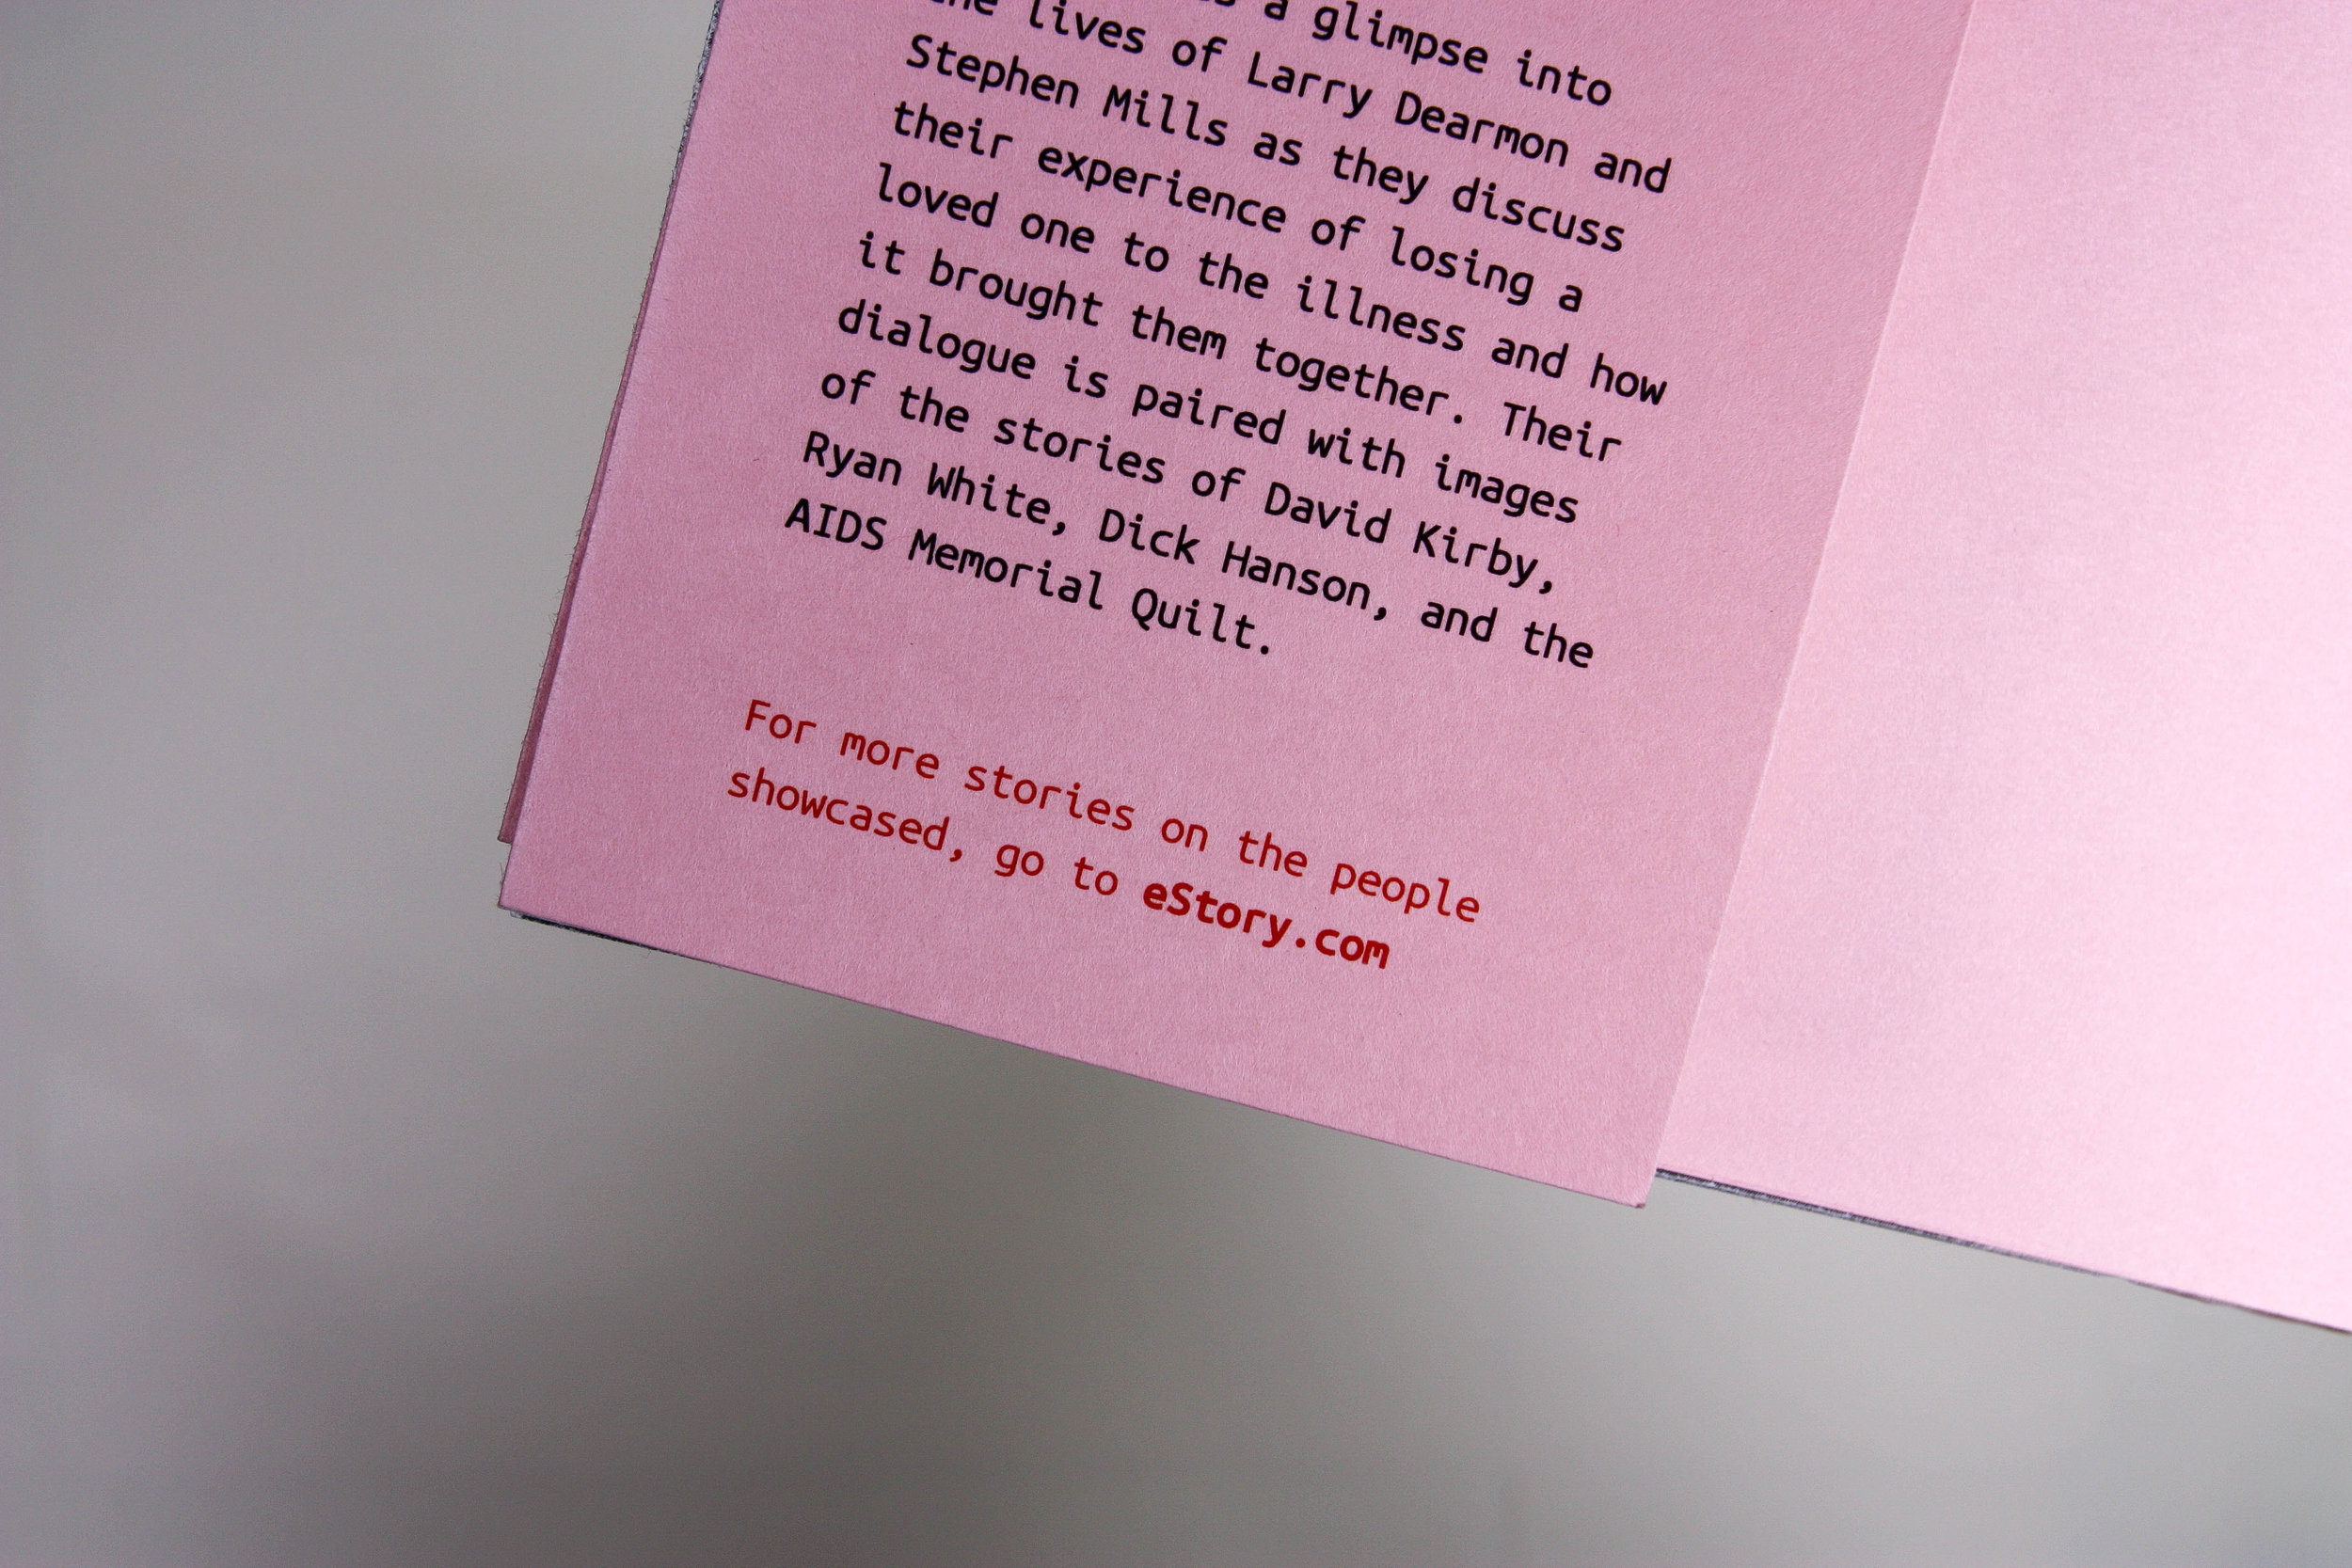 a glimpse into
the lives of Larry Dearmon and
Stephen Mills as they discuss
their experience of losing a
loved one to the illness and how
it brought them together. Their
dialogue is paired with images
of the stories of David Kirby,
Ryan White, Dick Hanson, and the
AIDS Memorial Quilt.
For more stories on the people
showcased, go to eStory.com